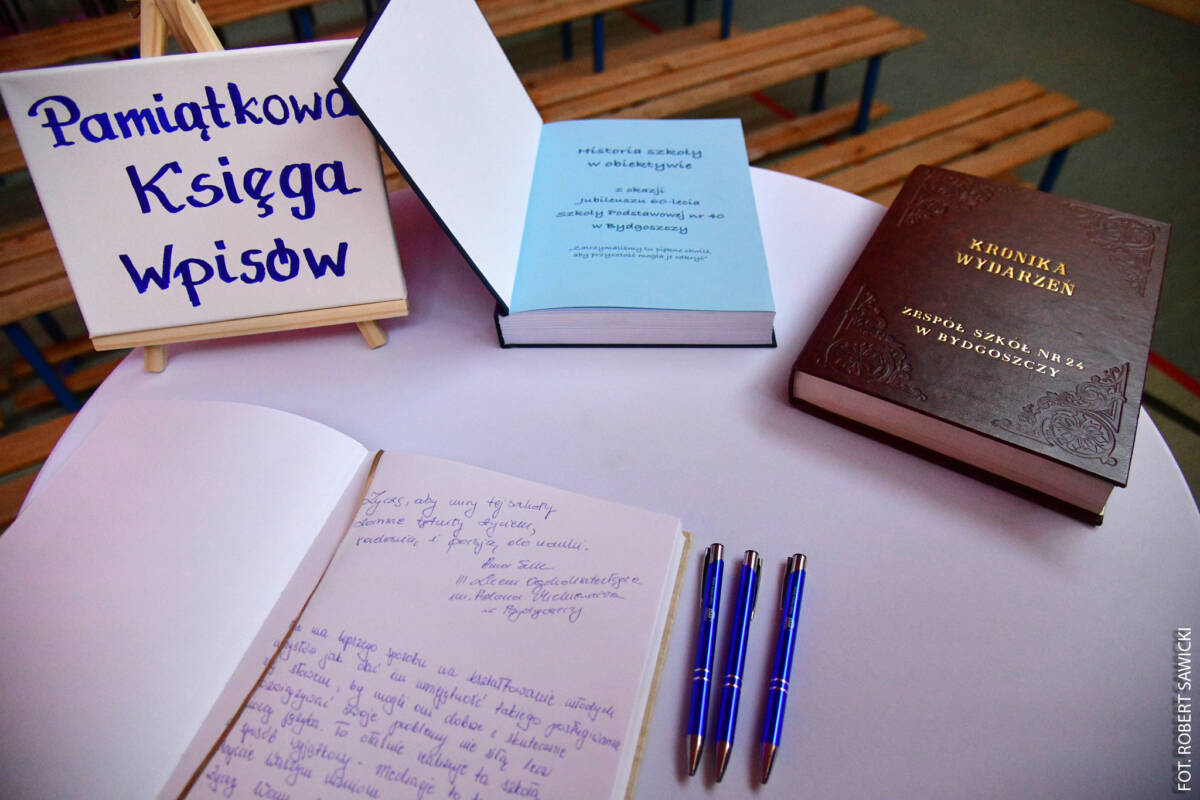 Pamiątkowa
Księga
Wpisów
Historia szkoły
w obiektywie
z okazji
Jubileuszu 60-lecia
Szkoły Podstawowej nr 40
w Bydgoszczy
„Zatrzymaliśmy te piękne chwile,
aby przyszłość mogła je odkryć”
KRONIKA
WYDARZEŃ
ZESPÓŁ SZKÓŁ NR 24
W BYDGOSZCZY
Życzę, aby mury tej szkoły
tętniły życiem,
radością i pasją do nauki.
III Liceum Ogólnokształcące
im. Adama Mickiewicza
w Bydgoszczy
ma lepszego sposobu na kształtowanie młodych
jak dać im umiejętność takiego posługiwania
słowem, by mogli oni dobrze i skutecznie
swoje problemy nie siłą lecz
języka. To właśnie realizuje ta szkoła
sposób wyjątkowy. Mediacje to
Waszym
Życzę Wam
FOT. ROBERT SAWICKI